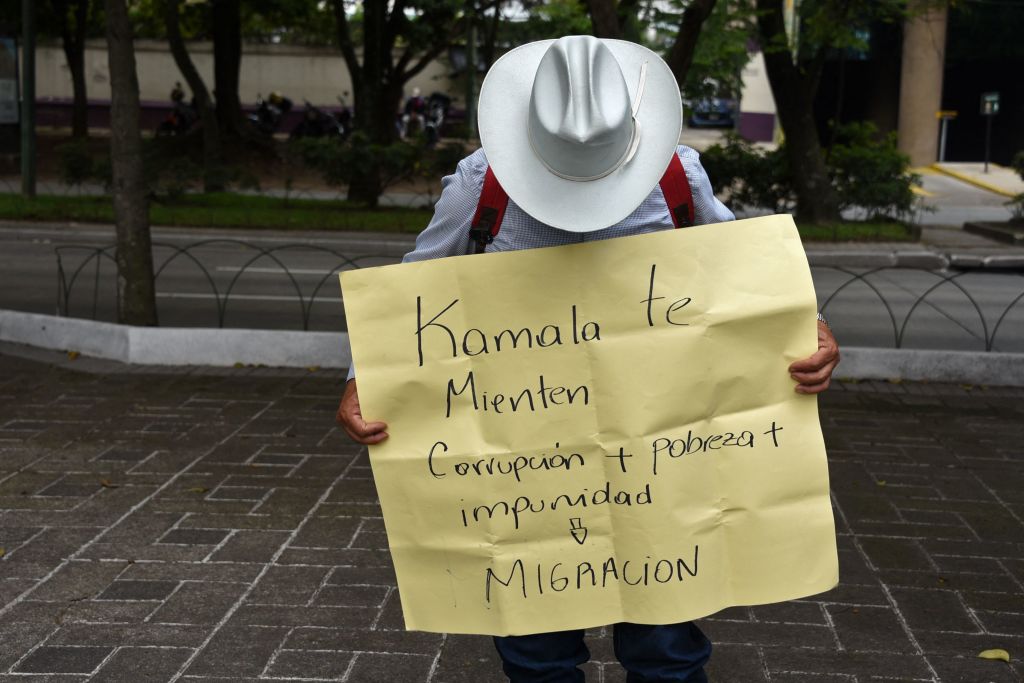 Kamala te
Mienten
Corrupción + pobreza +
impunidad
⇩
MIGRACION